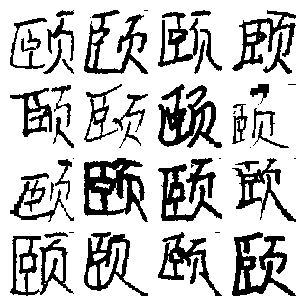 颐颐颐颐
颐颐颐颐
颐颐颐颐
颐颐颐颐